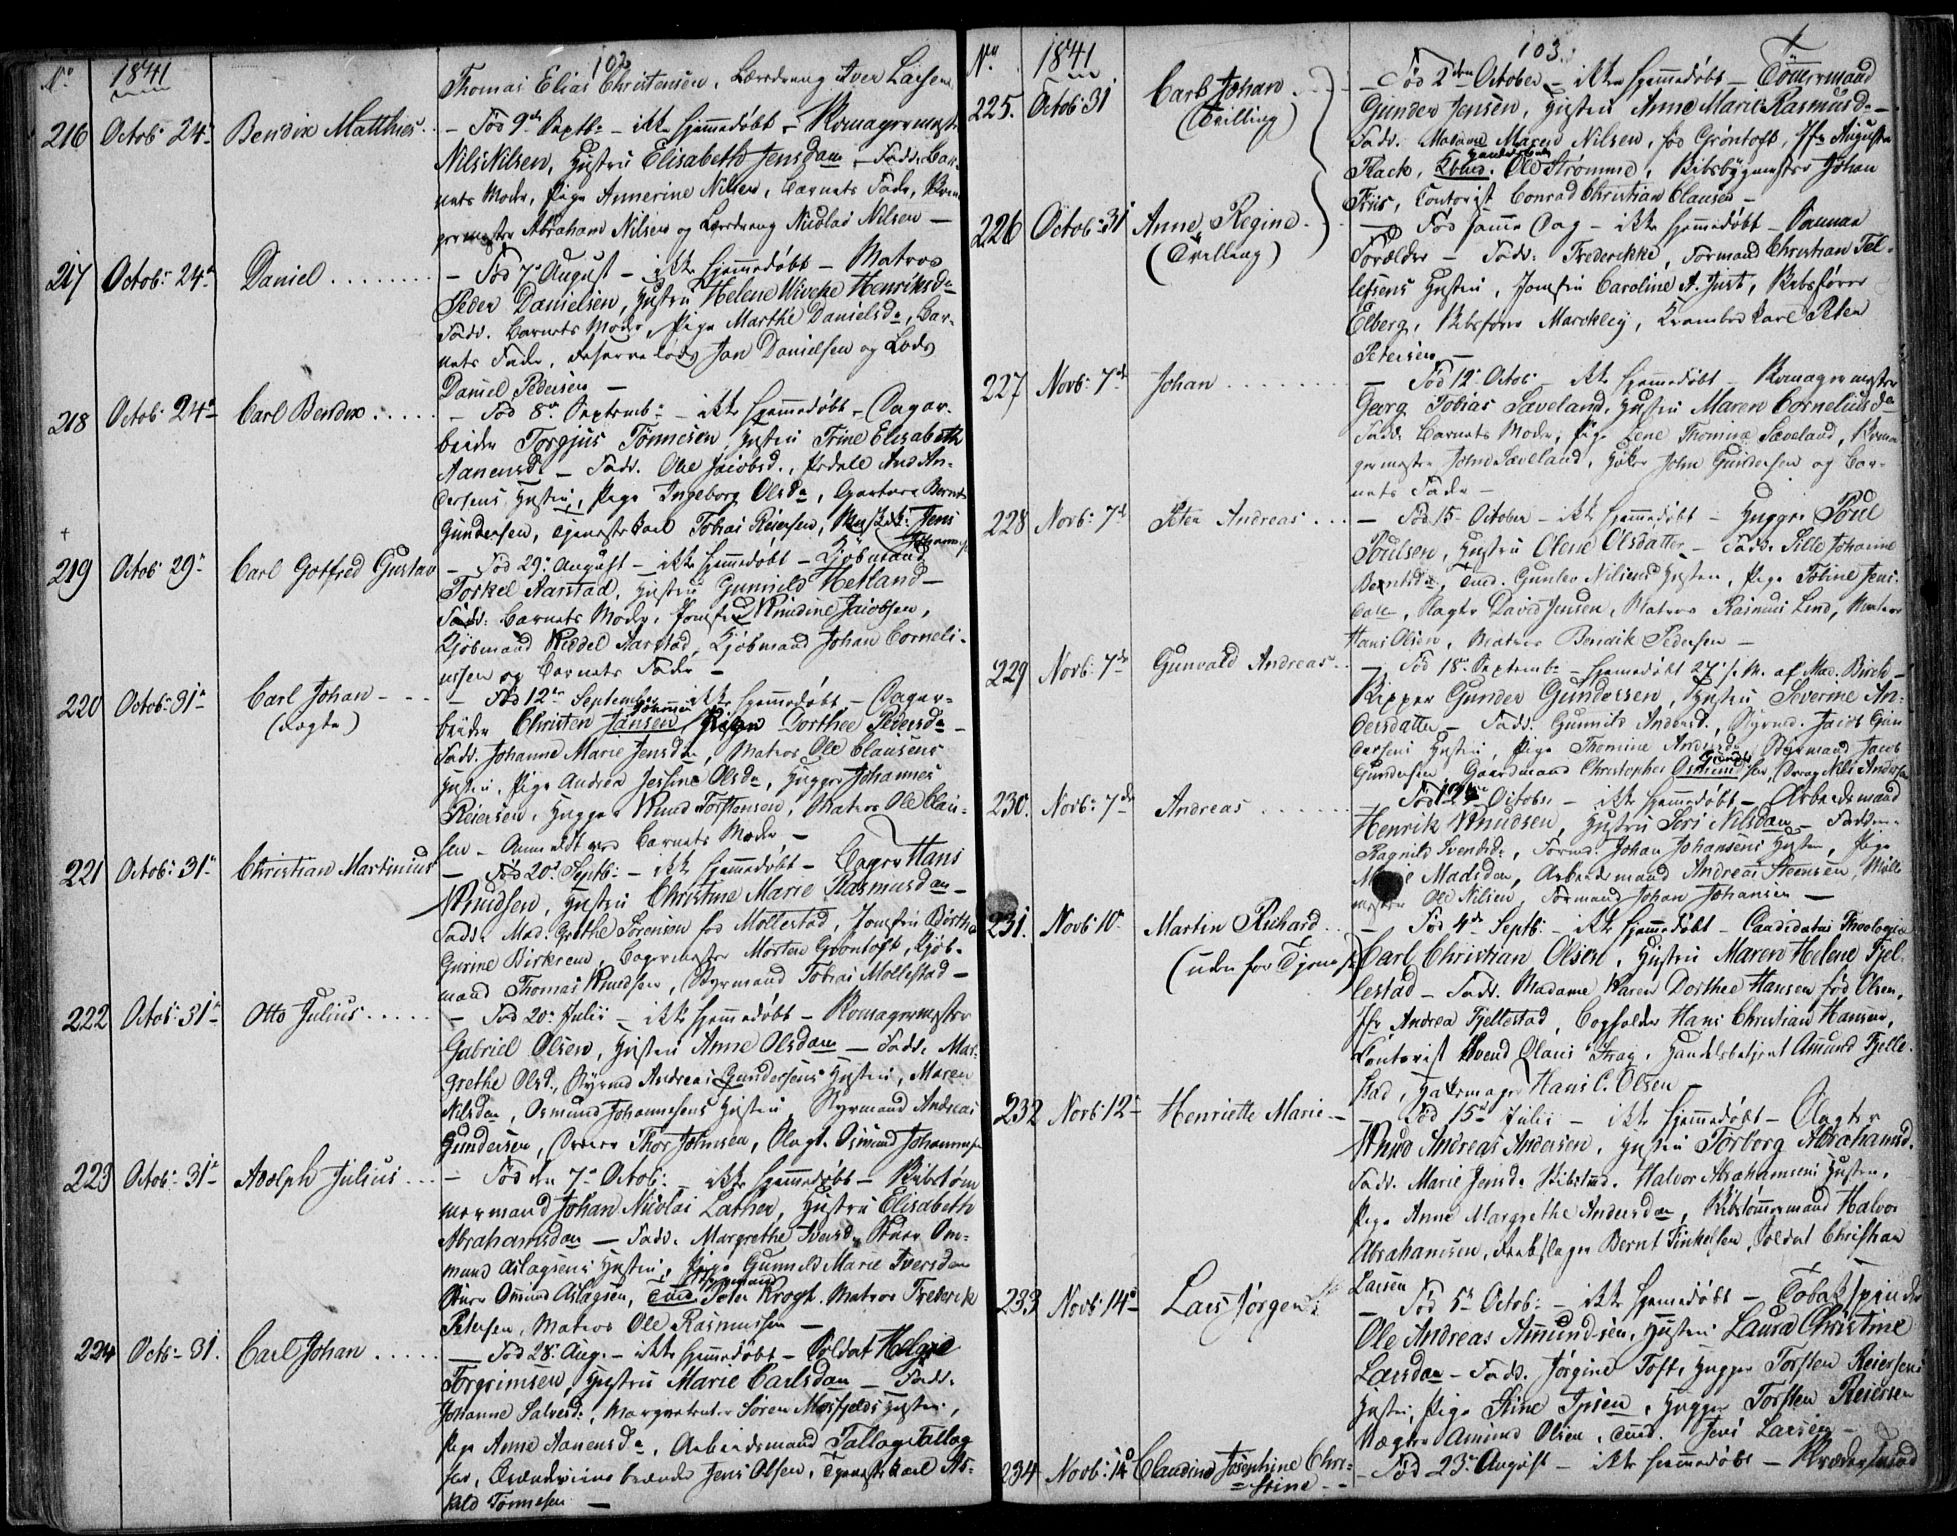 102
No 1841
Thomas Elias Christensen, Læredreng Iver Larsen
216 Octob: 24de Bendix Matthies. - Fød 9de Septb: - ikke hjemmedøbt - Skomagermester
Nils Nilsen, Hustru Elisabeth Jensdatter - Fadd: Bar-
nets Moder, Pige Annerine Nilsen, Barnets Fader, Skoma-
germester Abraham Nilsen og Læredreng Nicolai Nilsen -
217 Octob: 24de Daniel - Fød 7de August - ikke hjemmedøbt - Matros
Peder Danielsen, Hustru Helene Wiveke Henriksdr
Fadd. Barnets Moder, Pige Marthe Danielsdr, Bar-
nets Fader, Jan Danielsen og Lods
Daniel Pedersen -
218 Octob: 24de Carl Bendix - Fød 8de Septemb: - ikke hjemmedøbt - Dagar-
beider Torgjus Tønnesen, Hustru Trine Elisabeth
Aanensd. - Fadd. Ole Jacobsd., And An-
dersens Hustru, Pige Ingeborg Olsdr, Gartner Bernt
Gundersen, Tjenestekarl Tobias Reiersen, Jens
Johannes
219 Octob: 29de Carl Gotfred Gustav - Fød 29de August - ikke hjemmedøbt - Kjøbmand
Torkel Aarstad, Hustru Gunnild Hetland -
Fadd: Barnets Moder, Jomfru Knudine Jacobsen,
Kjøbmand Aarstad, Kjøbmand Johan Corneli-
ussen og Barnets Fader -
220 Octob: 31te Carl Johan - - Fød 12te September - ikke hjemmedøbt - Dagar-
(uægte) beider Christen Jansen Pigen Dorthee Pedersdr -
Fadd. Johanne Marie Jensdr, Matros Ole Clausens
Hustru, Pige Andrea Jessine Olsdr, Hugger Johannes
Reiersen, Hugger Knud Torstensen, Matros Ole Clau-
sen - Anmeldt ved Barnets Moder -
221 Octob: 31te Christian Martinius - Fød 20de Septb: - ikke hjemmedøbt - Bager Hans
Knudsen, Hustru Christine Marie Rasmusdatter -
Fadd. Mad. Grethe Sørensen fød Mollestad, Jomfru Børthe
Gurine Birkrem, Bagermester Morten Grøntoft, Kjøb-
mand Thomas Knudsen, Styrmand Tobias Mollestad -
222 Octob: 31te Otto Julius - Fød 20de Julii - ikke hjemmedøbt - Skomagermester
Gabriel Olsen, Hustru Anne Olsdatter - Fadd. Mar-
grethe Olsd., Styrmd Andreas Gundersens Hustru, Maren
Nilsdr, Osmund Johannesens Hustru, Styrmand Andreas
Gundersen, Thor Johnsen, Osmund Johannesen
223 Octob: 31te Adolph Julius - Fød den 7de Octob: - ikke hjemmedøbt - Skibstøm-
mermand Johan Nicolai Lather, Hustru Elisabeth
Abrahamsdatter - Fadd. Margrethe Iversdr, Om-
mund Aslagsens Hustru, Pige Gunneld Marie Iversdatter
Ommund Aslagsen, Tmd. Peter Krogh, Matros Frederik
Petersen, Matros Ole Rasmussen -
224 Octb: 31. Carl Johan - Fød 28de Aug. - ikke hjemmedøbt - Soldat Helgie
Torgrimsen, Hustru Marie Carlsdatter - Fadd.
Johanne Salvesdr, Søren Mosfjelds Hustru,
Pige Anne Aanensdr, Arbeidsmand Tallag Tallag-
sen, Brændeviinsbrænder Jens Olsen, Tjenestekarl As-
kild Tønnesen -
103.
No 1841
225. Octob: 31 Carl Johan (Tvilling) - Fød 2den October - ikke hjemmedøbt - Tømmermand
Gunder Jensen, Hustru Anne Marie Rasmusdr -
Fadd. Madame Maren Nilsen, fød Grøntoft, Jfr Augusta
Flack, Ole Strømme, Skibsbygmester Johan
Friis, Contorist Conrad Christian Clausen -
226 Octob: 31te Anne Regine (Tvilling) - Fød samme Dag - ikke hjemmedøbt - Samme
Forældre - Fadd: Frederikke, Formand Christian Tel-
lefsens Hustru, Jomfru Caroline A. Just, Skibsfører
Elberg, Skibsfører Marckley, Krambodkarl Peter
Petersen -
227 Novb: 7de Johan - Fød 12te Octob - ikke hjemmedøbt - Skomagermester
Georg Tobias Saveland, Hustru Maren Corneliusdr
Fadd. Barnets Moder, Pige Lene Thomine Sæveland, Skoma-
germester John Sæveland, Høker John Gundersen og Bar-
nets Fader -
228 Novb: 7de Peter Andreas - Fød 15de October - ikke hjemmedøbt - Hugger Poul
Poulsen, Hustru Olene Olsdatter - Fadd. Sille Johanne
Berntsdr, Tmd. Gunlev Nilsens Hustru, Pige Toline Jens-
datter, Vægter David Jensen, Matros Rasmus Lind, Matros
Hans Olsen, Matros Bendik Pedersen -
229 Novb: 7de Gunvald Andreas - Fød 18de Septemb: - hjemmedøbt 27de s. M. af Mad. Birch -
Kipper Gunder Gundersen, Hustru Severine An-
dersdatter - Fadd. Gunnild Andersd., Styrmd. Jacob Gun-
dersens Hustru, Pige Thomine Andersdr, Styrmand Jacob
Gundersen, Gaardmand Christopher Osmundsen, Dreng Nils Andersen
230. Novb: 7de Andreas - Fød October - ikke hjemmedøbt - Arbeidsmand
Henrik Knudsen, Hustru Seri Nilsdatter - Faddere
Ragnild Svendsdr, Formd. Johan Johansens Hustru, Pige
Madsdatter, Arbeidsmand Andreas Steensen, Møller-
mester Ole Nilsen, Formand Johan Johansen -
231. Novb: 10de Martin Richard - Fød 4de Septb: - ikke hjemmedøbt - Candidatus Theologiæ
(uden for Tjeneste) Carl Christian Olsen, Hustru Maren Helene Fjel-
lestad - Fadd. Madame Karen Dorthee Hansen fød Olsen,
Jfr Andrea Fjellestad, Bogholder Hans Christian Hansen,
Contorist Svend Olaus Krag, Handelsbetjent Amund Fjelle-
stad, Hattemager Hans C. Olsen -
232 Novb: 12te Henriette Marie - - Fød 15de Julii - ikke hjemmedøbt -
Knud Andreas Andersen, Hustru Torborg Abrahamsd.
Fadd. Marie Jensdr Skibstmd. Halvor Abrahamsens Hustru,
Pige Anne Margrethe Andersdatter, Skibstømmermand Halvor
Abrahamsen, Rebslager Bernt Finkelsen, Soldat Christian
Larsen
233 Novb: 14de Lars Jørgen - Fød 5te Octob: - ikke hjemmedøbt - Tobakspinder
Ole Andreas Amundsen, Hustru Laura Christine
Larsdatter - Fadd. Jørgine Toft, Hugger Torsten Reiersens
Hustru, Pige Stine Ipsen, Hugger Torsten Reiersen
Vægter Amund Olsen, Tmd. Jens Larsen -
234 Novb: 14de Claudine Josephine Chri-
stine - - Fød 23de August - ikke hjemmedøbt -